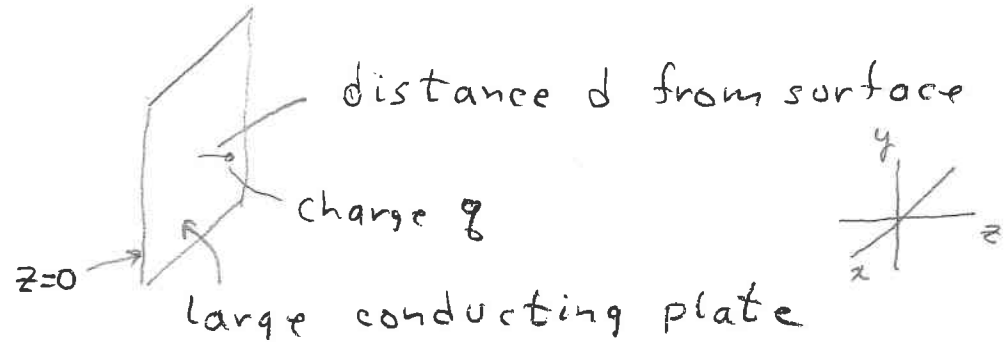 distance d from surface
y
charge q
z
z=0
x
large conducting plate